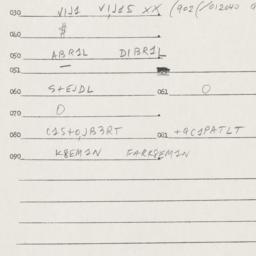 030 VIJ1 VIJ15 XX (902(/012040
040 $
050 ABR1L DIBR1L
051 —
060 S+EJDL 061 O
070 O
080 C1S+O,JB3RT 081 +9C1PATLT
090 K8EM1N FARK8EM1N